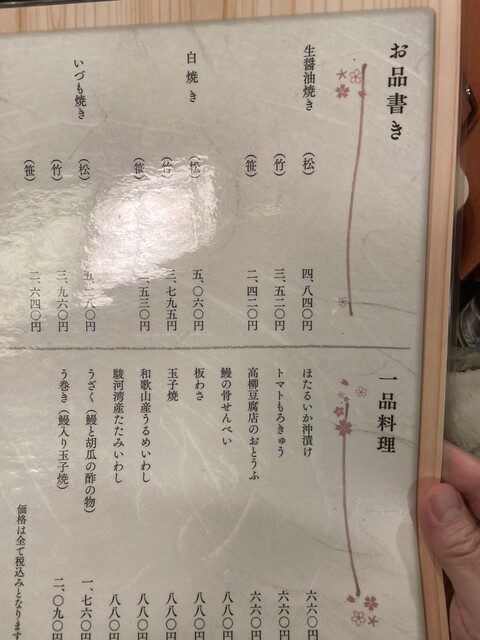 お品書き
生醤油焼き
（松） 四、八四〇円
（竹） 三、五二〇円
（笹） 二、四二〇円
白焼き
（松） 五、〇六〇円
（竹） 三、七九五円
（笹） 二、五三〇円
いづも焼き
（松） 五、二八〇円
（竹） 三、九六〇円
（笹） 二、六四〇円
一品料理
ほたるいか沖漬け 六六〇円
トマトもろきゅう 六六〇円
高柳豆腐店のおとうふ 六六〇円
鰻の骨せんべい 八八〇円
板わさ 八八〇円
玉子焼 八八〇円
和歌山産うるめいわし 八八〇円
駿河湾産たたみいわし 八八〇円
うざく（鰻と胡瓜の酢の物） 一、七六〇円
う巻き（鰻入り玉子焼） 二、〇九〇円
価格は全て税込みとなります